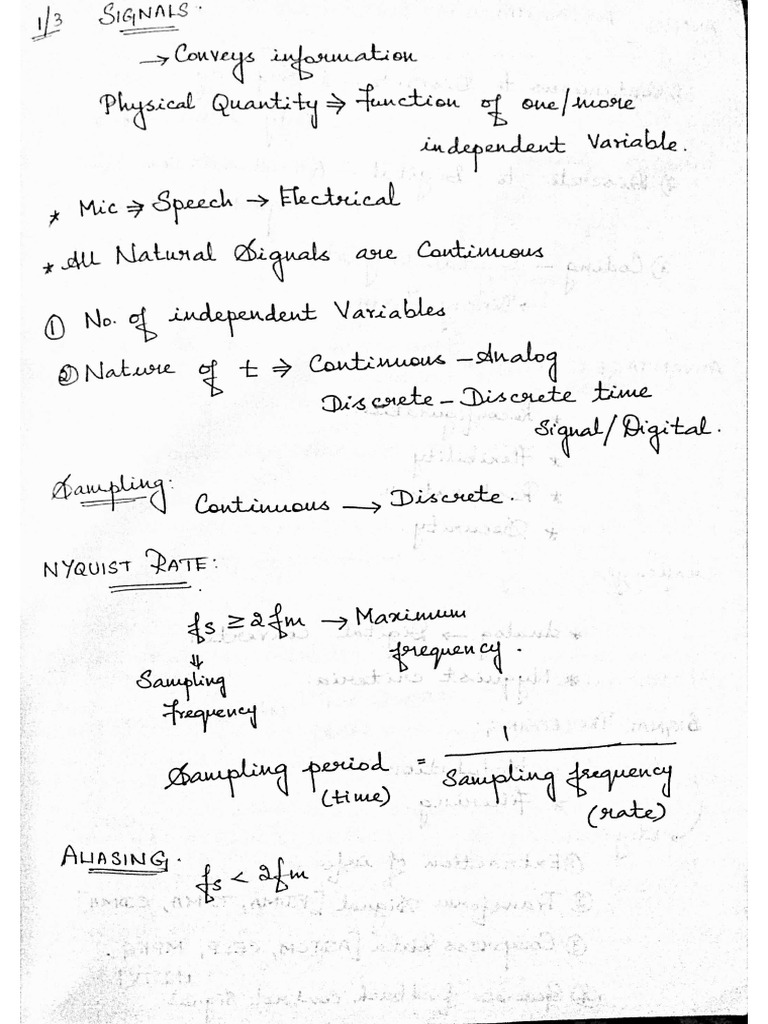 1/3 SIGNALS.
→ Conveys information
Physical Quantity ⇒ Function of one/more
independent Variable.
* Mic ⇒ Speech → Electrical
* All Natural Signals are Continuous
① No. of independent Variables
② Nature of t ⇒ Continuous – Analog
Discrete – Discrete time
Signal/Digital.
Sampling:
Continuous → Discrete.
NYQUIST RATE:
fs ≥ 2fm → Maximum
frequency.
⇓
Sampling
frequency
Sampling period = 1
(time) Sampling frequency
(rate)
ALIASING.
fs < 2fm